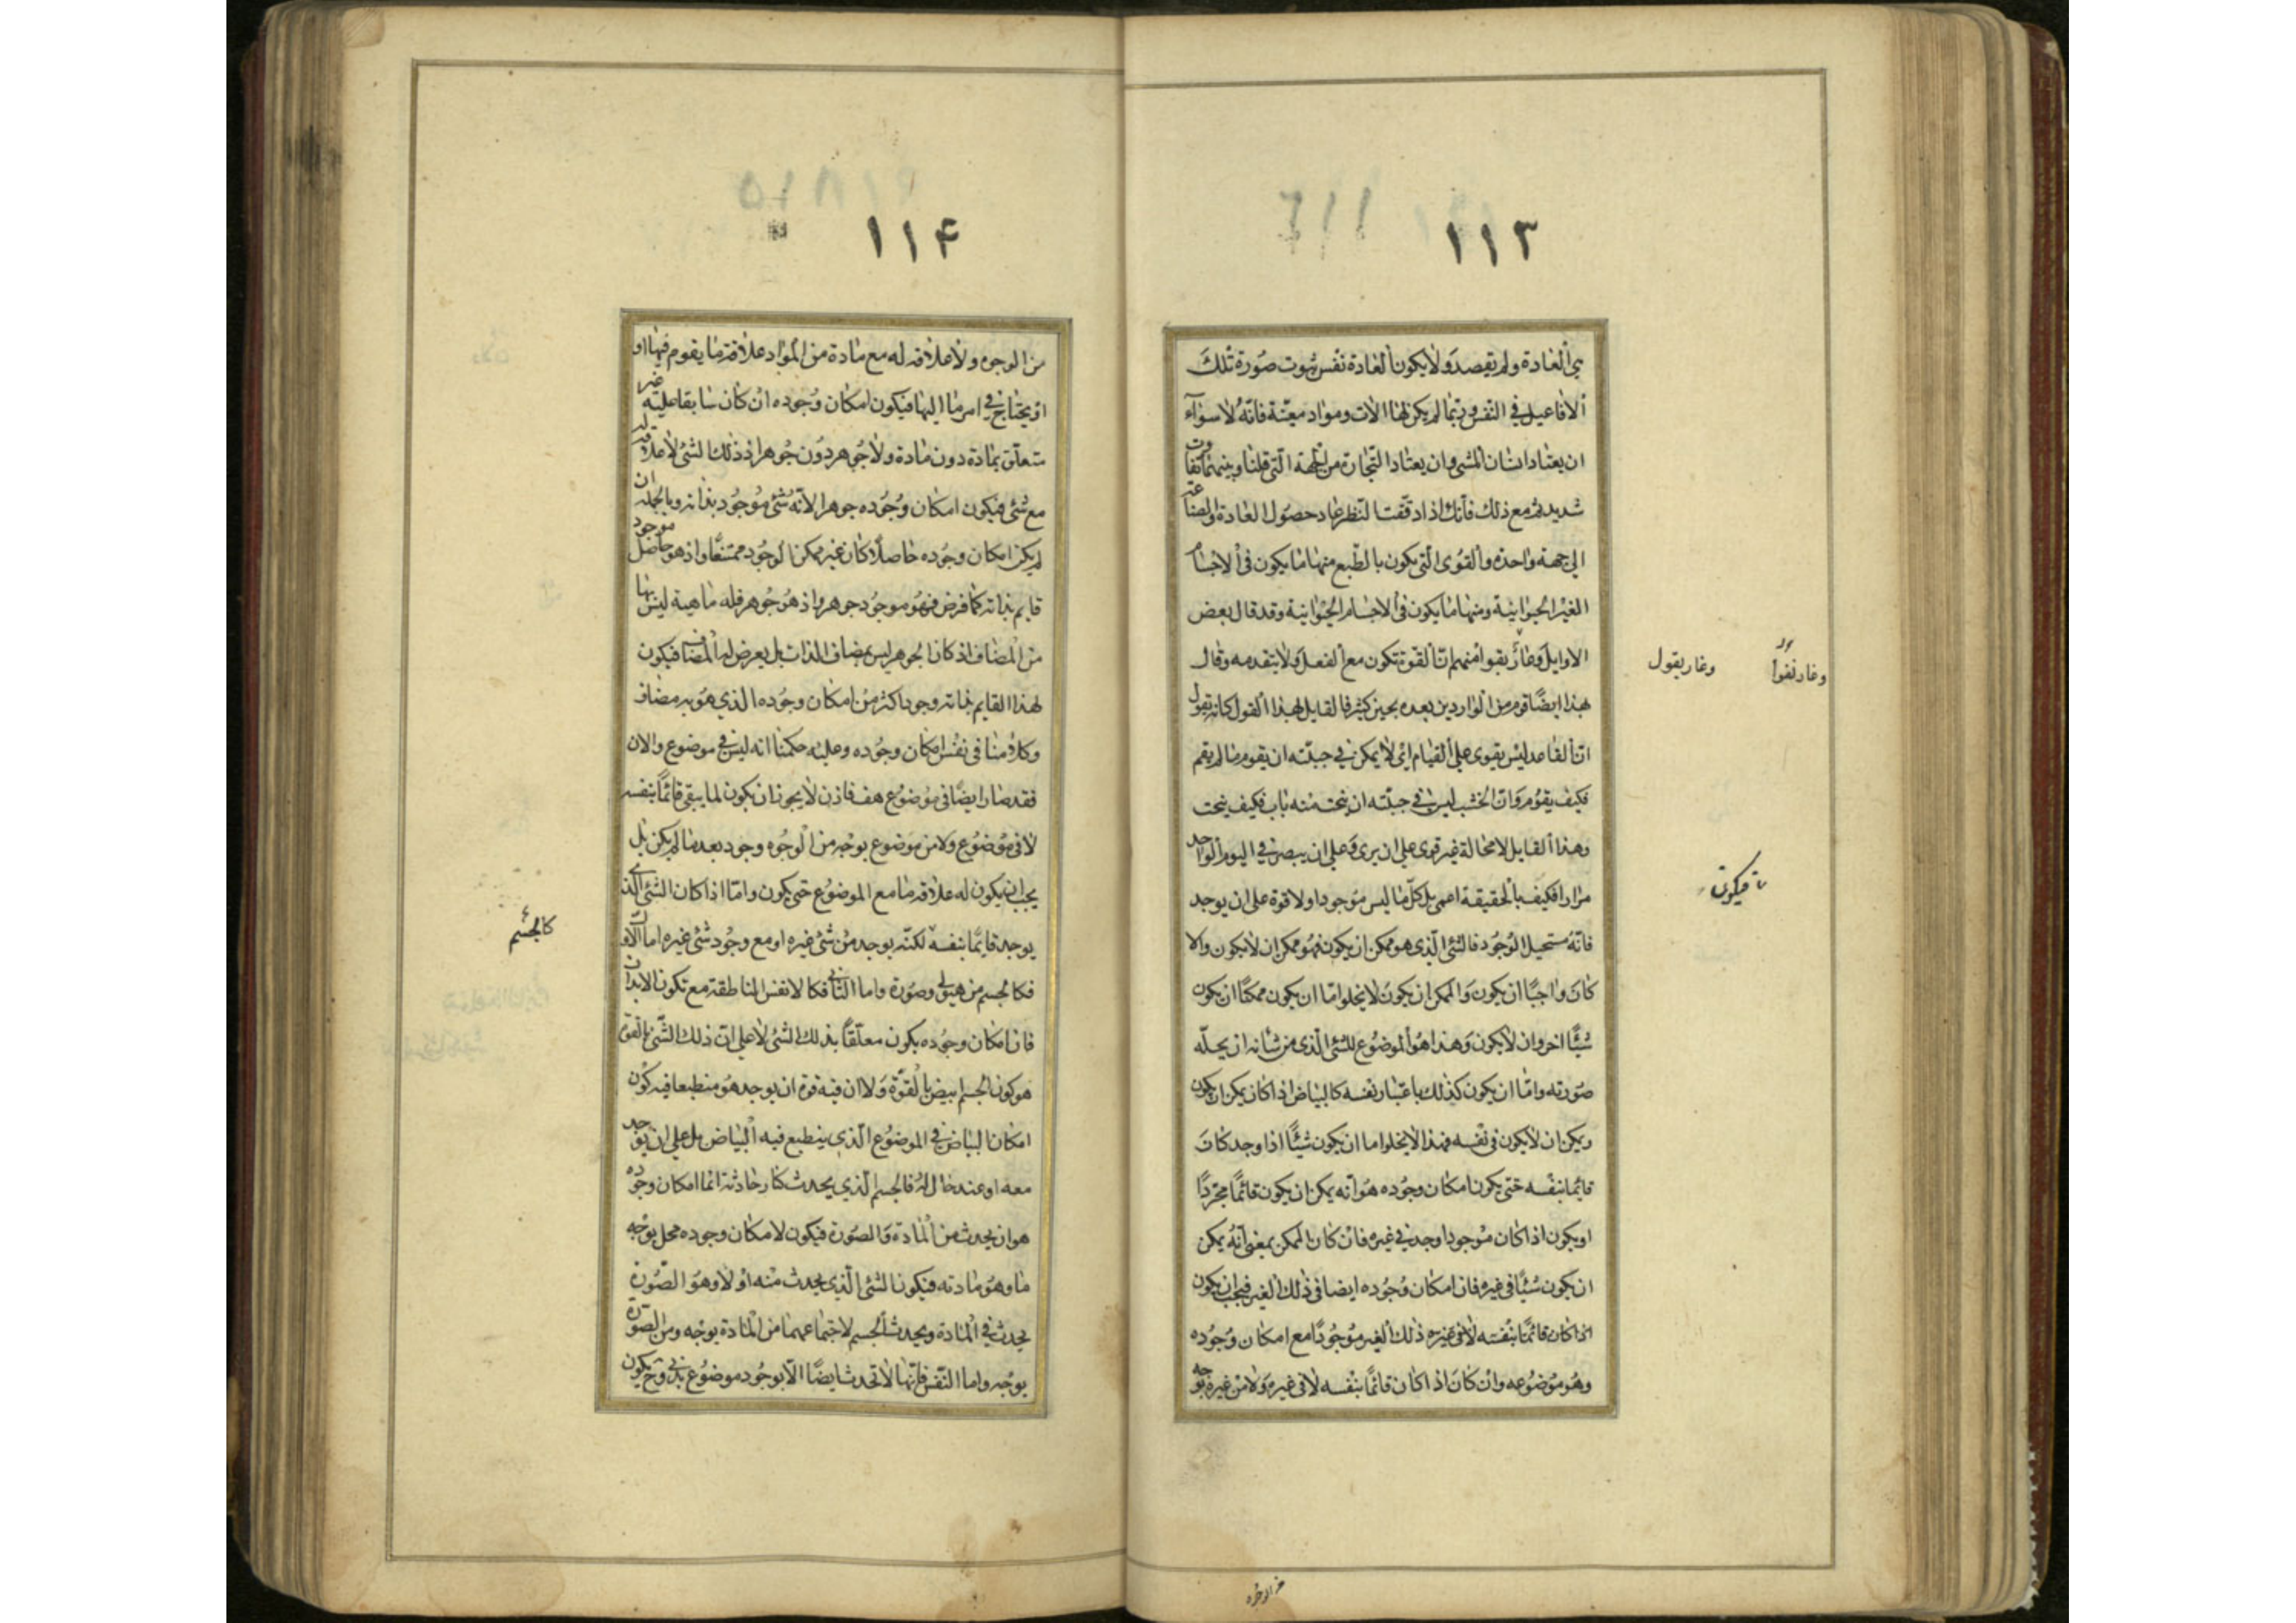 ١١٣
في العادة ولم يقصد ولا يكون العادة نفس ثبوت صورة تلك
الافاعيل في النفس وربما لم يكن لها الات ومواد معينة فانه لا سواء
ان يعتاد انسان المشي وان يعتاد التجارة من الجهة التي قلنا وبينهما تفاوت
شديد ثم مع ذلك فانك اذا دققت النظر عاد حصول العادة والصناعة
الى جهة واحدة والقوى التي يكون بالطبع منها ما يكون في الاجسام
الغير الحيوانية ومنها ما يكون في الاجسام الحيوانية وقد قال بعض
الاوايل وغار يقوا منهم ان القوة تكون مع الفعل ولا يتقدمه وقال
بهذا ايضا قوم من الواردين بعده بحين كثير فالقايل لهذا القول كانه يقول
ان القاعد ليس يقوى على القيام اي لا يمكن في جبلته ان يقوم ما لم يقم
فكيف يقوم وان الخشب ليس في جبلته ان ينحت منه باب فكيف ينحت
وهذا القايل لا محالة غير قوى على ان يرى وعلى ان يبصر في اليوم الواحد
مرارا فكيف بالحقيقة اعمى بل كل ما ليس موجودا ولا قوة على ان يوجد
فانه مستحيل الوجود فالشئ الذى هو ممكن ان يكون فهو ممكن ان لا يكون والا
كان واجبا ان يكون والممكن ان يكون لا يخلوا ما ان يكون ممكنا ان يكون
شيئا اخر وان لا يكون وهذا هو الموضوع للشئ الذى من شانه ان يحله
صورته واما ان يكون كذلك باعتبار نفسه كالبياض اذا كان يمكن ان يكون
ويمكن ان لا يكون في نفسه فهذا لا يخلوا ما ان يكون شيئا اذا وجد كان
قايما بنفسه حتى يكون امكان وجوده هو انه يمكن ان يكون قائما مجردا
او يكون اذا كان موجودا وجد في غيره فان كان الممكن بمعنى انه يمكن
ان يكون شيئا في غيره فان امكان وجوده ايضا في ذلك الغير فيجب ان يكون
اذا كان قائما بنفسه لا في غيره ذلك الغير موجودا مع امكان وجوده
وهو موضوعه وان كان اذا كان قائما بنفسه لا في غيره ولا من غيره بوجه
وغار يقول
فيكون
من الوجوه
١١٤
من الوجوه ولا علاقه له مع مادة من المواد علاقة ما يقوم فيها او
او يحتاج في امر ما اليها فيكون امكان وجوده ان كان سابقا عليه غير
متعلق بمادة دون مادة ولا جوهر دون جوهر اذ ذلك الشئ لا علاقة له
مع شئ فيكون امكان وجوده جوهرا لانه شئ موجود بذاته وبالجملة ان
لم يكن امكان وجوده حاصلا كان غير ممكن الوجود ممتنعا واذ هو حاصل موجود
قايم بذاته كما فرض فهو موجود جوهر واذ هو جوهر فله ماهية ليس بها
من المضاف اذ كان الجوهر ليس بمضاف الذات بل يعرض له المضاف فيكون
لهذا القايم بذاته وجود اكثر من امكان وجوده الذي هو به مضاف
وكلامنا في نفس امكان وجوده وعليه حكمنا انه ليس في موضوع والان
فقد صار ايضا في موضوع هف فاذن لا يجوز ان يكون لما يبقى قائما بنفسه
لا في موضوع ولا من موضوع بوجه من الوجوه وجود بعد ما لم يكن بل
يجب ان يكون له علاقه ما مع الموضوع حتى يكون واما اذا كان الشئ الذي
يوجد قايما بنفسه لكنه يوجد من شئ غيره او مع وجود شئ غيره اما الاول
فكالجسم من هيولى وصورة واما الثاني فكالانفس الناطقة مع تكون الابدان
فان امكان وجوده يكون معلقا بذلك الشئ لا على ان ذلك الشئ بالقوة
هو كون الجسم ابيض بالقوة ولا ان فيه قوة ان يوجد هو منطبعا فيه كون
امكان البياض في الموضوع الذي ينطبع فيه البياض بل على ان يوجد
معه او عند حال له فالجسم الذي يحدث كنار حادثة انما امكان وجوده
هو ان يحدث من المادة والصورة فيكون لامكان وجوده محل بوجه
ما وهو مادته فيكون الشئ الذي يحدث منه اولا وهو الصورة
يحدث في المادة ويحدث الجسم لاجتماعهما من المادة بوجه ومن الصورة
بوجه واما النفس فانها لا تحدث ايضا الا بوجود موضوع بدني وح يكون
كالجسم